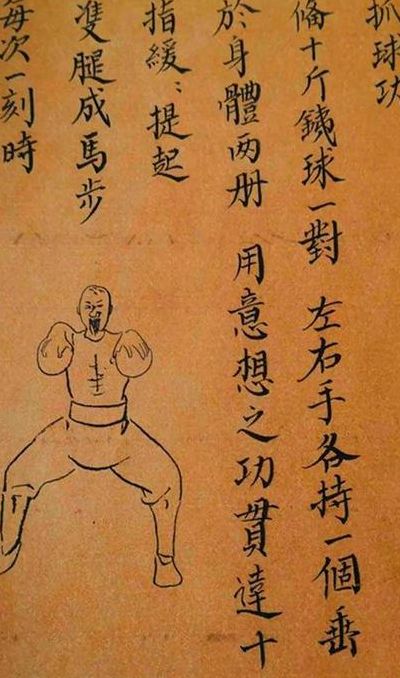 抓球功
俻十斤銕球一對 左右手各持一個垂
於身體两册 用意想之功貫達十
指緩〻提起
隻腿成馬步
每次一刻時